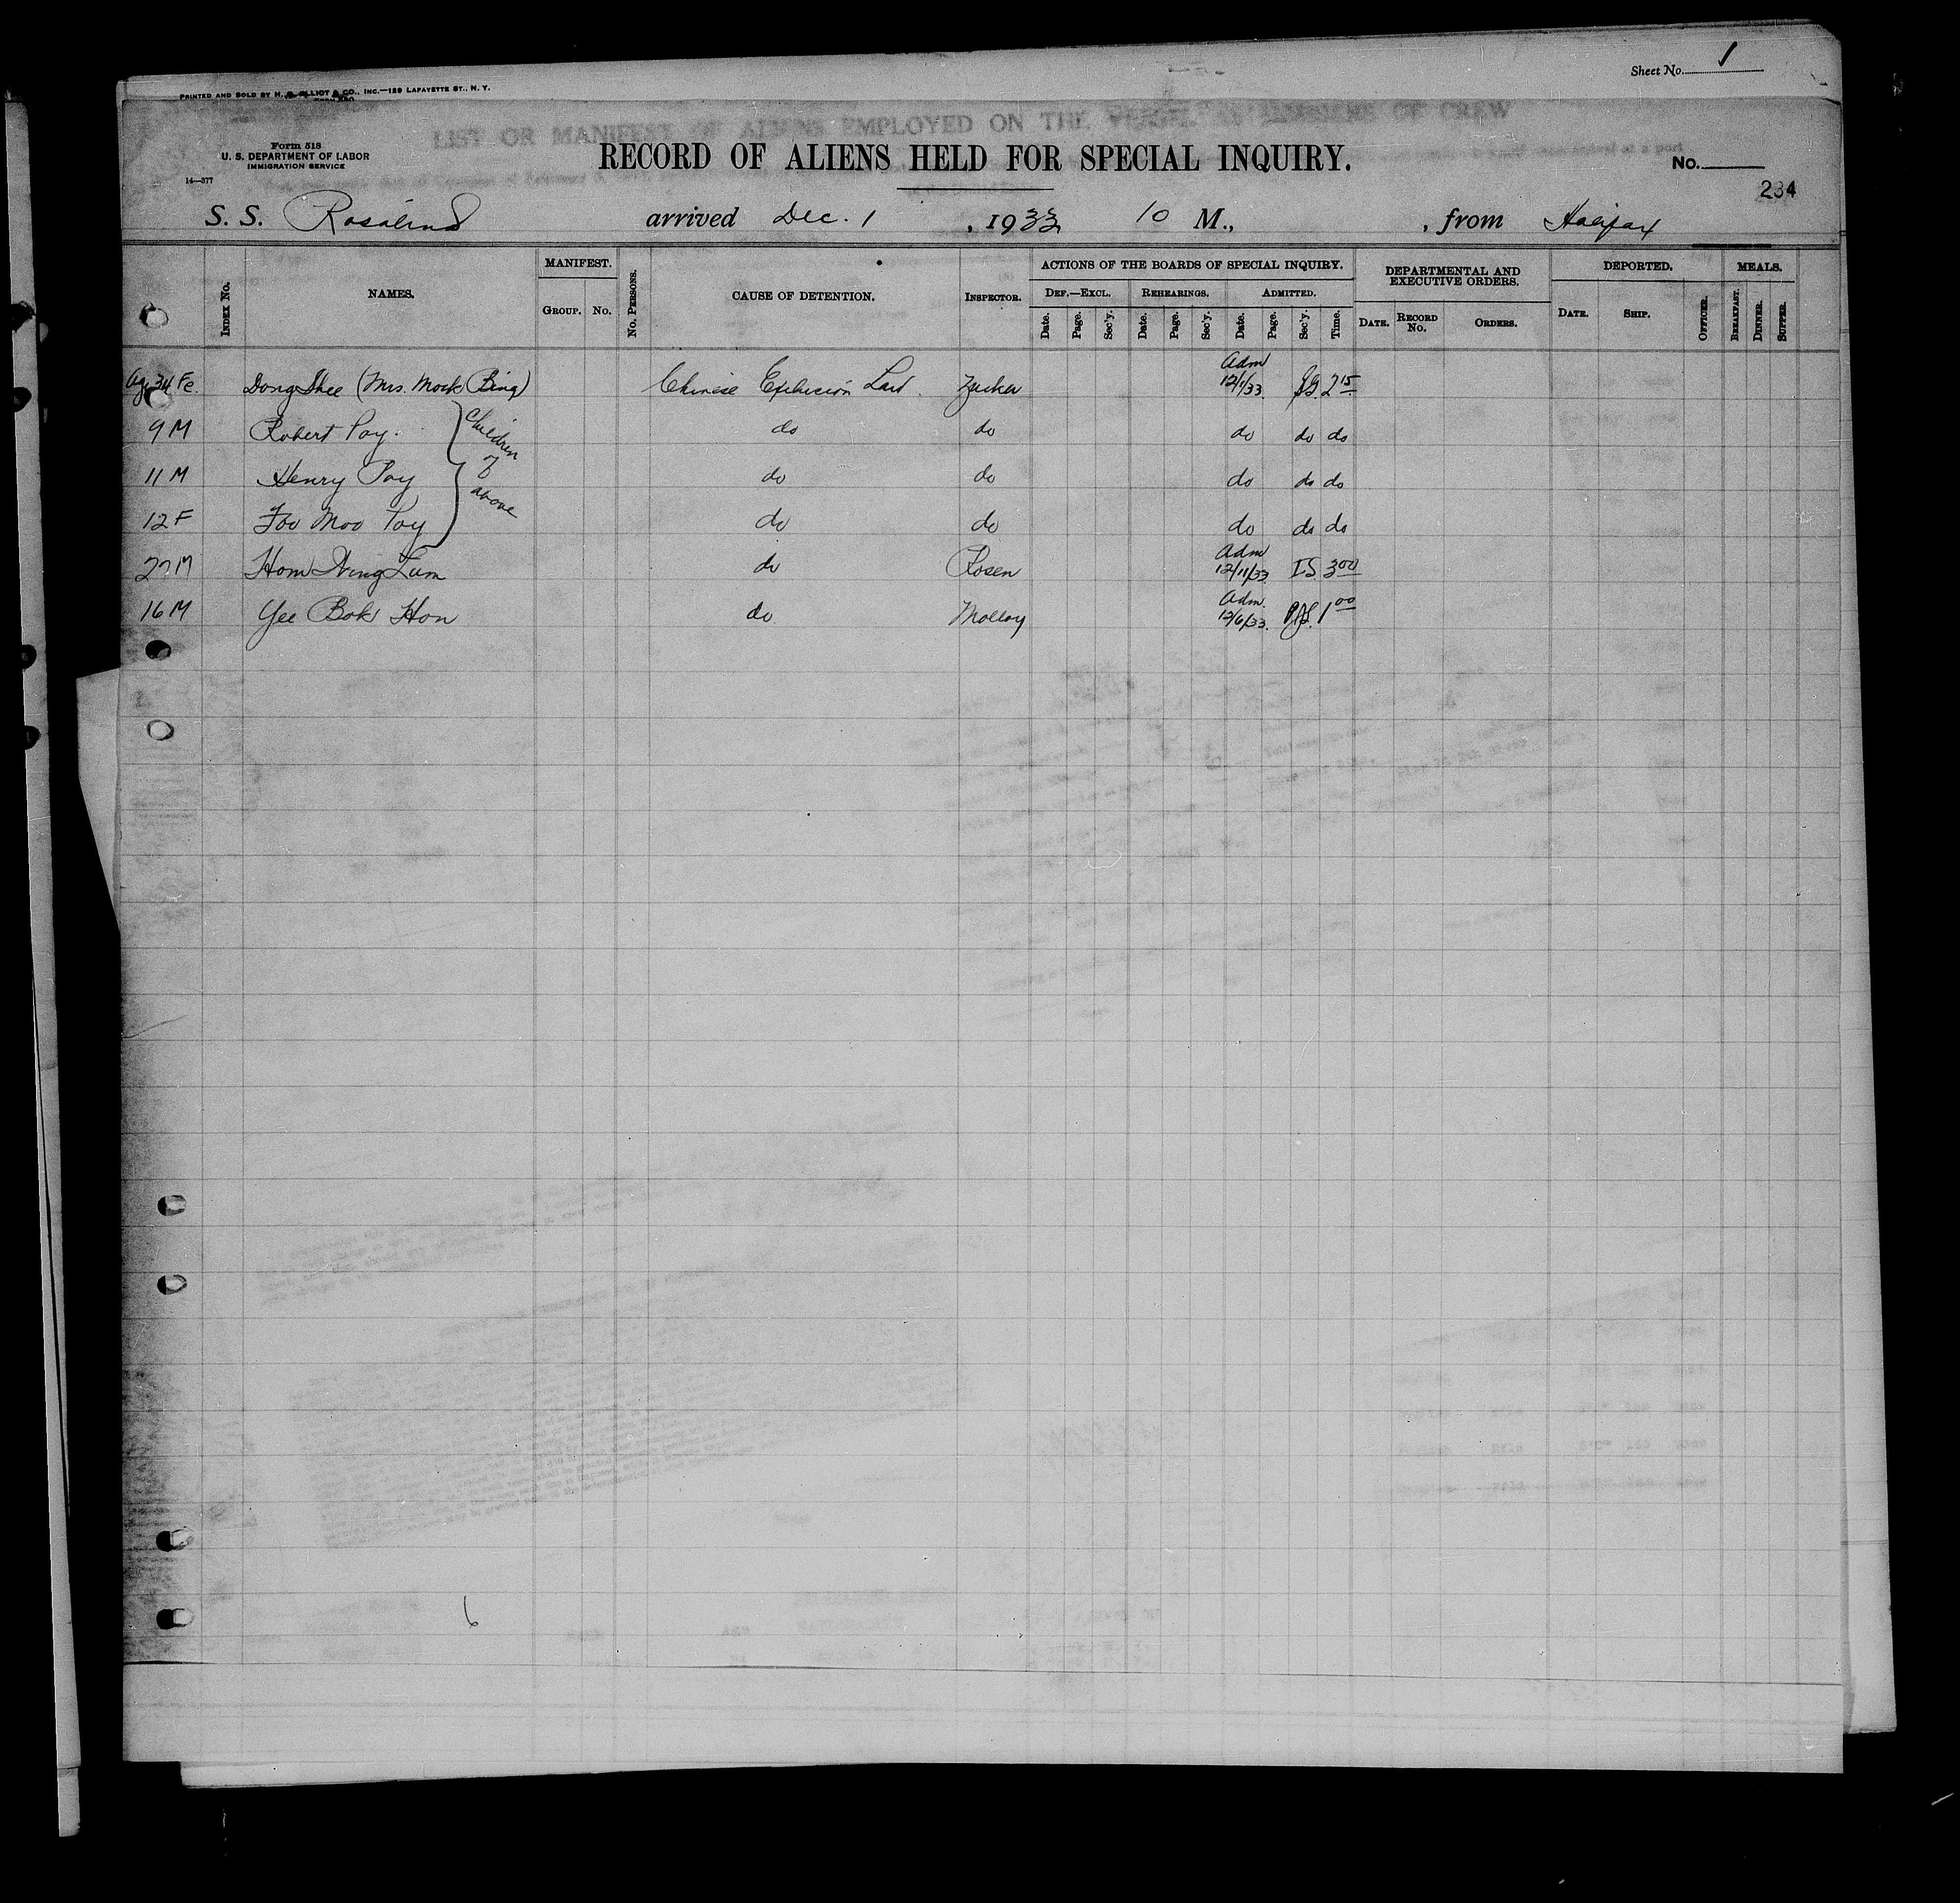 Sheet No. 1
PRINTED AND SOLD BY H. S. ELLIOT & CO., INC.—129 LAFAYETTE ST., N. Y.
LIST OR MANIFEST OF ALIENS EMPLOYED ON THE VESSEL AS MEMBERS OF CREW
Form 518
U. S. DEPARTMENT OF LABOR
IMMIGRATION SERVICE
14—377
RECORD OF ALIENS HELD FOR SPECIAL INQUIRY.
No.
234
S. S. Rosalind arrived Dec. 1, 1933 10 M., , from Halifax
INDEX NO. NAMES. MANIFEST. GROUP. NO. NO. PERSONS. CAUSE OF DETENTION. INSPECTOR. ACTIONS OF THE BOARDS OF SPECIAL INQUIRY. DEPARTMENTAL AND EXECUTIVE ORDERS. DEPORTED. MEALS.
DEF.—EXCL. REHEARINGS. ADMITTED.
Date. Page. Sec'y. Date. Page. Sec'y. Date. Page. Sec'y. Time. DATE. RECORD NO. ORDERS. DATE. SHIP. OFFICER. BREAKFAST. DINNER. SUPPER.
Age 34 Fe. Dong Shee (Mrs. Mock Bing) Chinese Exclusion Law. Zucker Adm 12/1/33. 2 15
9 M Robert Poy. do do do do do
11 M Henry Poy do do do do do
12 F Foo Moo Poy do do do do do
Children of above
27 M Hom Ning Lum do Rosen Adm 12/11/33 I.S. 3 00
16 M Yee Bok Hon do Molloy Adm. 12/6/33. 1 00
6